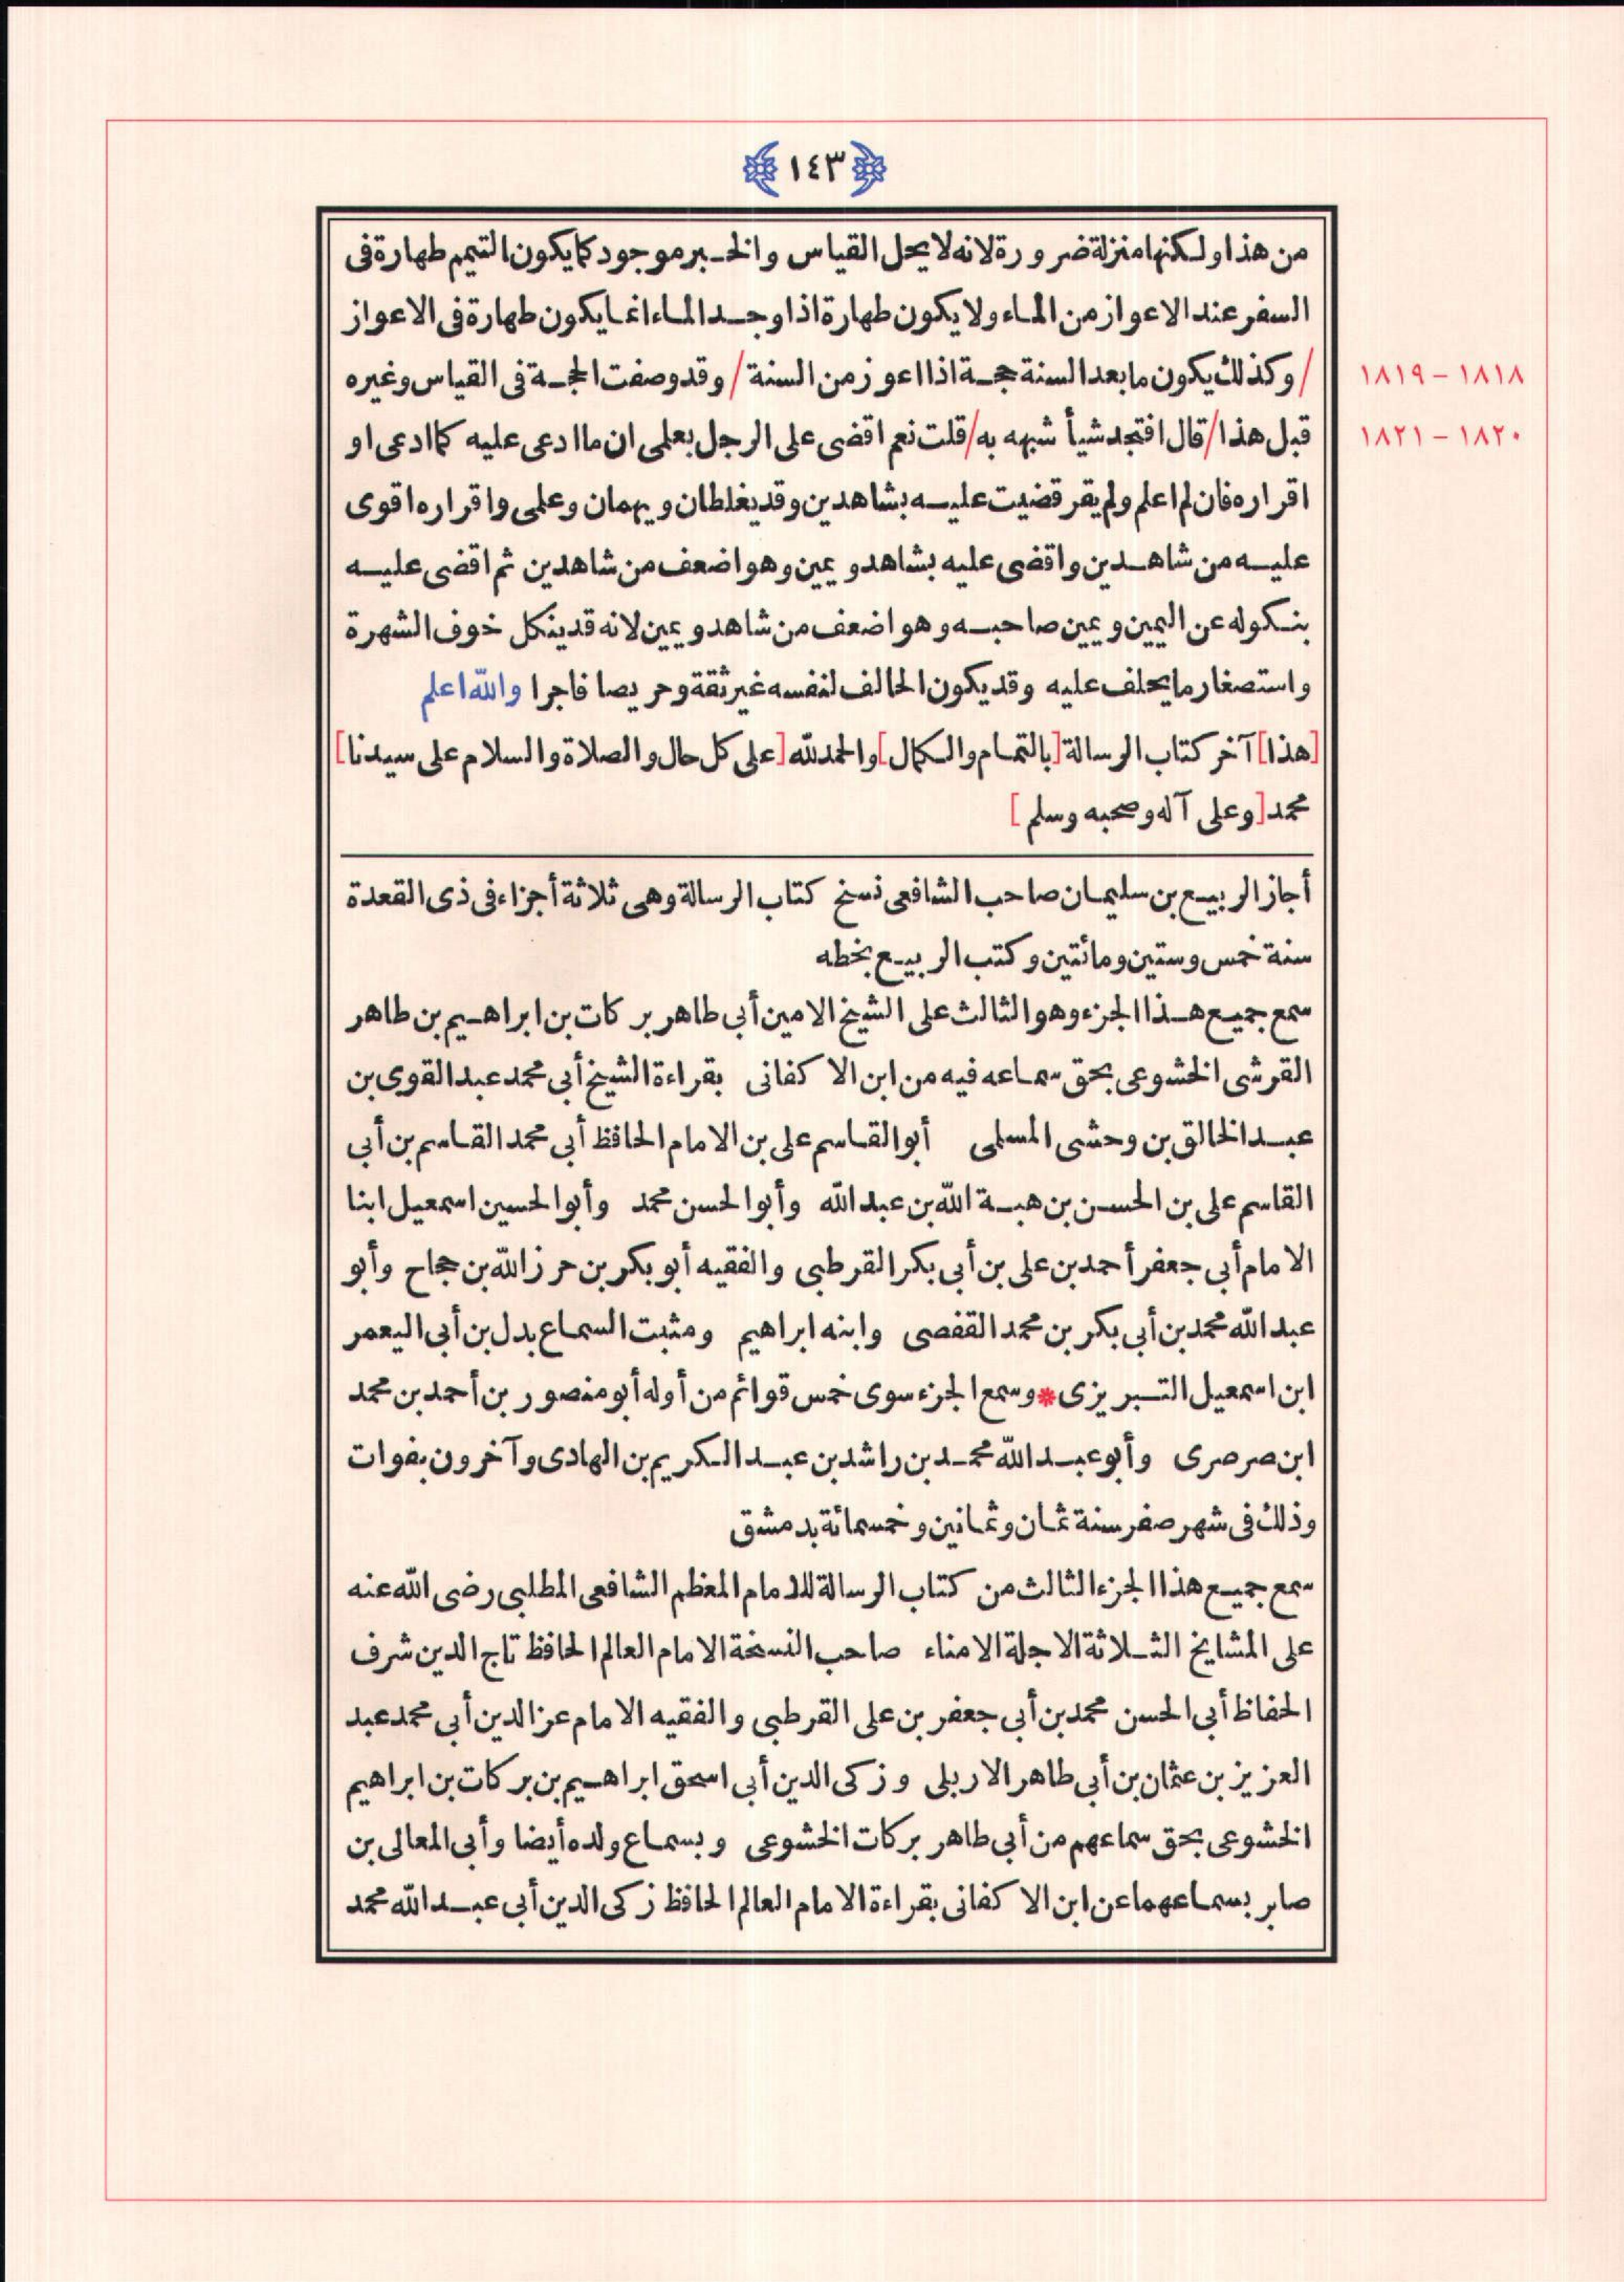 ١٤٣
من هذا ولكنها منزلة ضرورة لانه لا يحل القياس والخبر موجود كما يكون التيمم طهارة فى
السفر عند الاعواز من الماء ولا يكون طهارة اذا وجد الماء انما يكون طهارة فى الاعواز
/ وكذلك يكون ما بعد السنة حجة اذا اعوز من السنة / وقد وصفت الحجة فى القياس وغيره
١٨١٨ – ١٨١٩
قبل هذا / قال افتجد شيأ شبهه به / قلت نعم اقضى على الرجل بعلمى ان ما ادعى عليه كما ادعى او
١٨٢٠ – ١٨٢١
اقراره فان لم اعلم ولم يقر قضيت عليه بشاهدين وقد يغلطان ويهمان وعلمى واقراره اقوى
عليه من شاهدين واقضى عليه بشاهد ويمين وهو اضعف من شاهدين ثم اقضى عليه
بنكوله عن اليمين ويمين صاحبه وهو اضعف من شاهد ويمين لانه قد ينكل خوف الشهرة
واستصغار ما يحلف عليه وقد يكون الحالف لنفسه غير ثقة وحريصا فاجرا والله اعلم
[هذا] آخر كتاب الرسالة [بالتمام والكمال] والحمد لله [على كل حال والصلاة والسلام على سيدنا]
محمد [وعلى آله وصحبه وسلم]
أجاز الربيع بن سليمان صاحب الشافعى نسخ كتاب الرسالة وهى ثلاثة أجزاء فى ذى القعدة
سنة خمس وستين ومائتين وكتب الربيع بخطه
سمع جميع هذا الجزء وهو الثالث على الشيخ الامين أبي طاهر بركات بن ابراهيم بن طاهر
القرشى الخشوعى بحق سماعه فيه من ابن الا كفانى بقراءة الشيخ أبي محمد عبد القوى بن
عبد الخالق بن وحشى المسلمى أبو القاسم على بن الامام الحافظ أبي محمد القاسم بن أبي
القاسم على بن الحسن بن هبة الله بن عبد الله وأبو الحسن محمد وأبو الحسين اسمعيل ابنا
الامام أبي جعفر أحمد بن على بن أبى بكر القرطبى والفقيه أبو بكر بن حرز الله بن حجاج وأبو
عبد الله محمد بن أبى بكر بن محمد القفصى وابنه ابراهيم ومثبت السماع بدل بن أبى اليعمر
ابن اسمعيل التبريزى * وسمع الجزء سوى خمس قوائم من أوله أبو منصور بن أحمد بن محمد
ابن صرصرى وأبو عبد الله محمد بن راشد بن عبد الكريم بن الهادى وآخرون بفوات
وذلك فى شهر صفر سنة ثمان وثمانين وخمسمائة بدمشق
سمع جميع هذا الجزء الثالث من كتاب الرسالة للامام المعظم الشافعى المطلبى رضى الله عنه
على المشايخ الثلاثة الاجلة الامناء صاحب النسخة الامام العالم الحافظ تاج الدين شرف
الحفاظ أبى الحسن محمد بن أبى جعفر بن على القرطبى والفقيه الامام عز الدين أبى محمد عبد
العزيز بن عثمان بن أبي طاهر الاربلى وزكى الدين أبى اسحق ابراهيم بن بركات بن ابراهيم
الخشوعى بحق سماعهم من أبي طاهر بركات الخشوعى وبسماع ولده أيضا وأبى المعالى بن
صابر بسماعهما عن ابن الا كفانى بقراءة الامام العالم الحافظ زكى الدين أبى عبد الله محمد